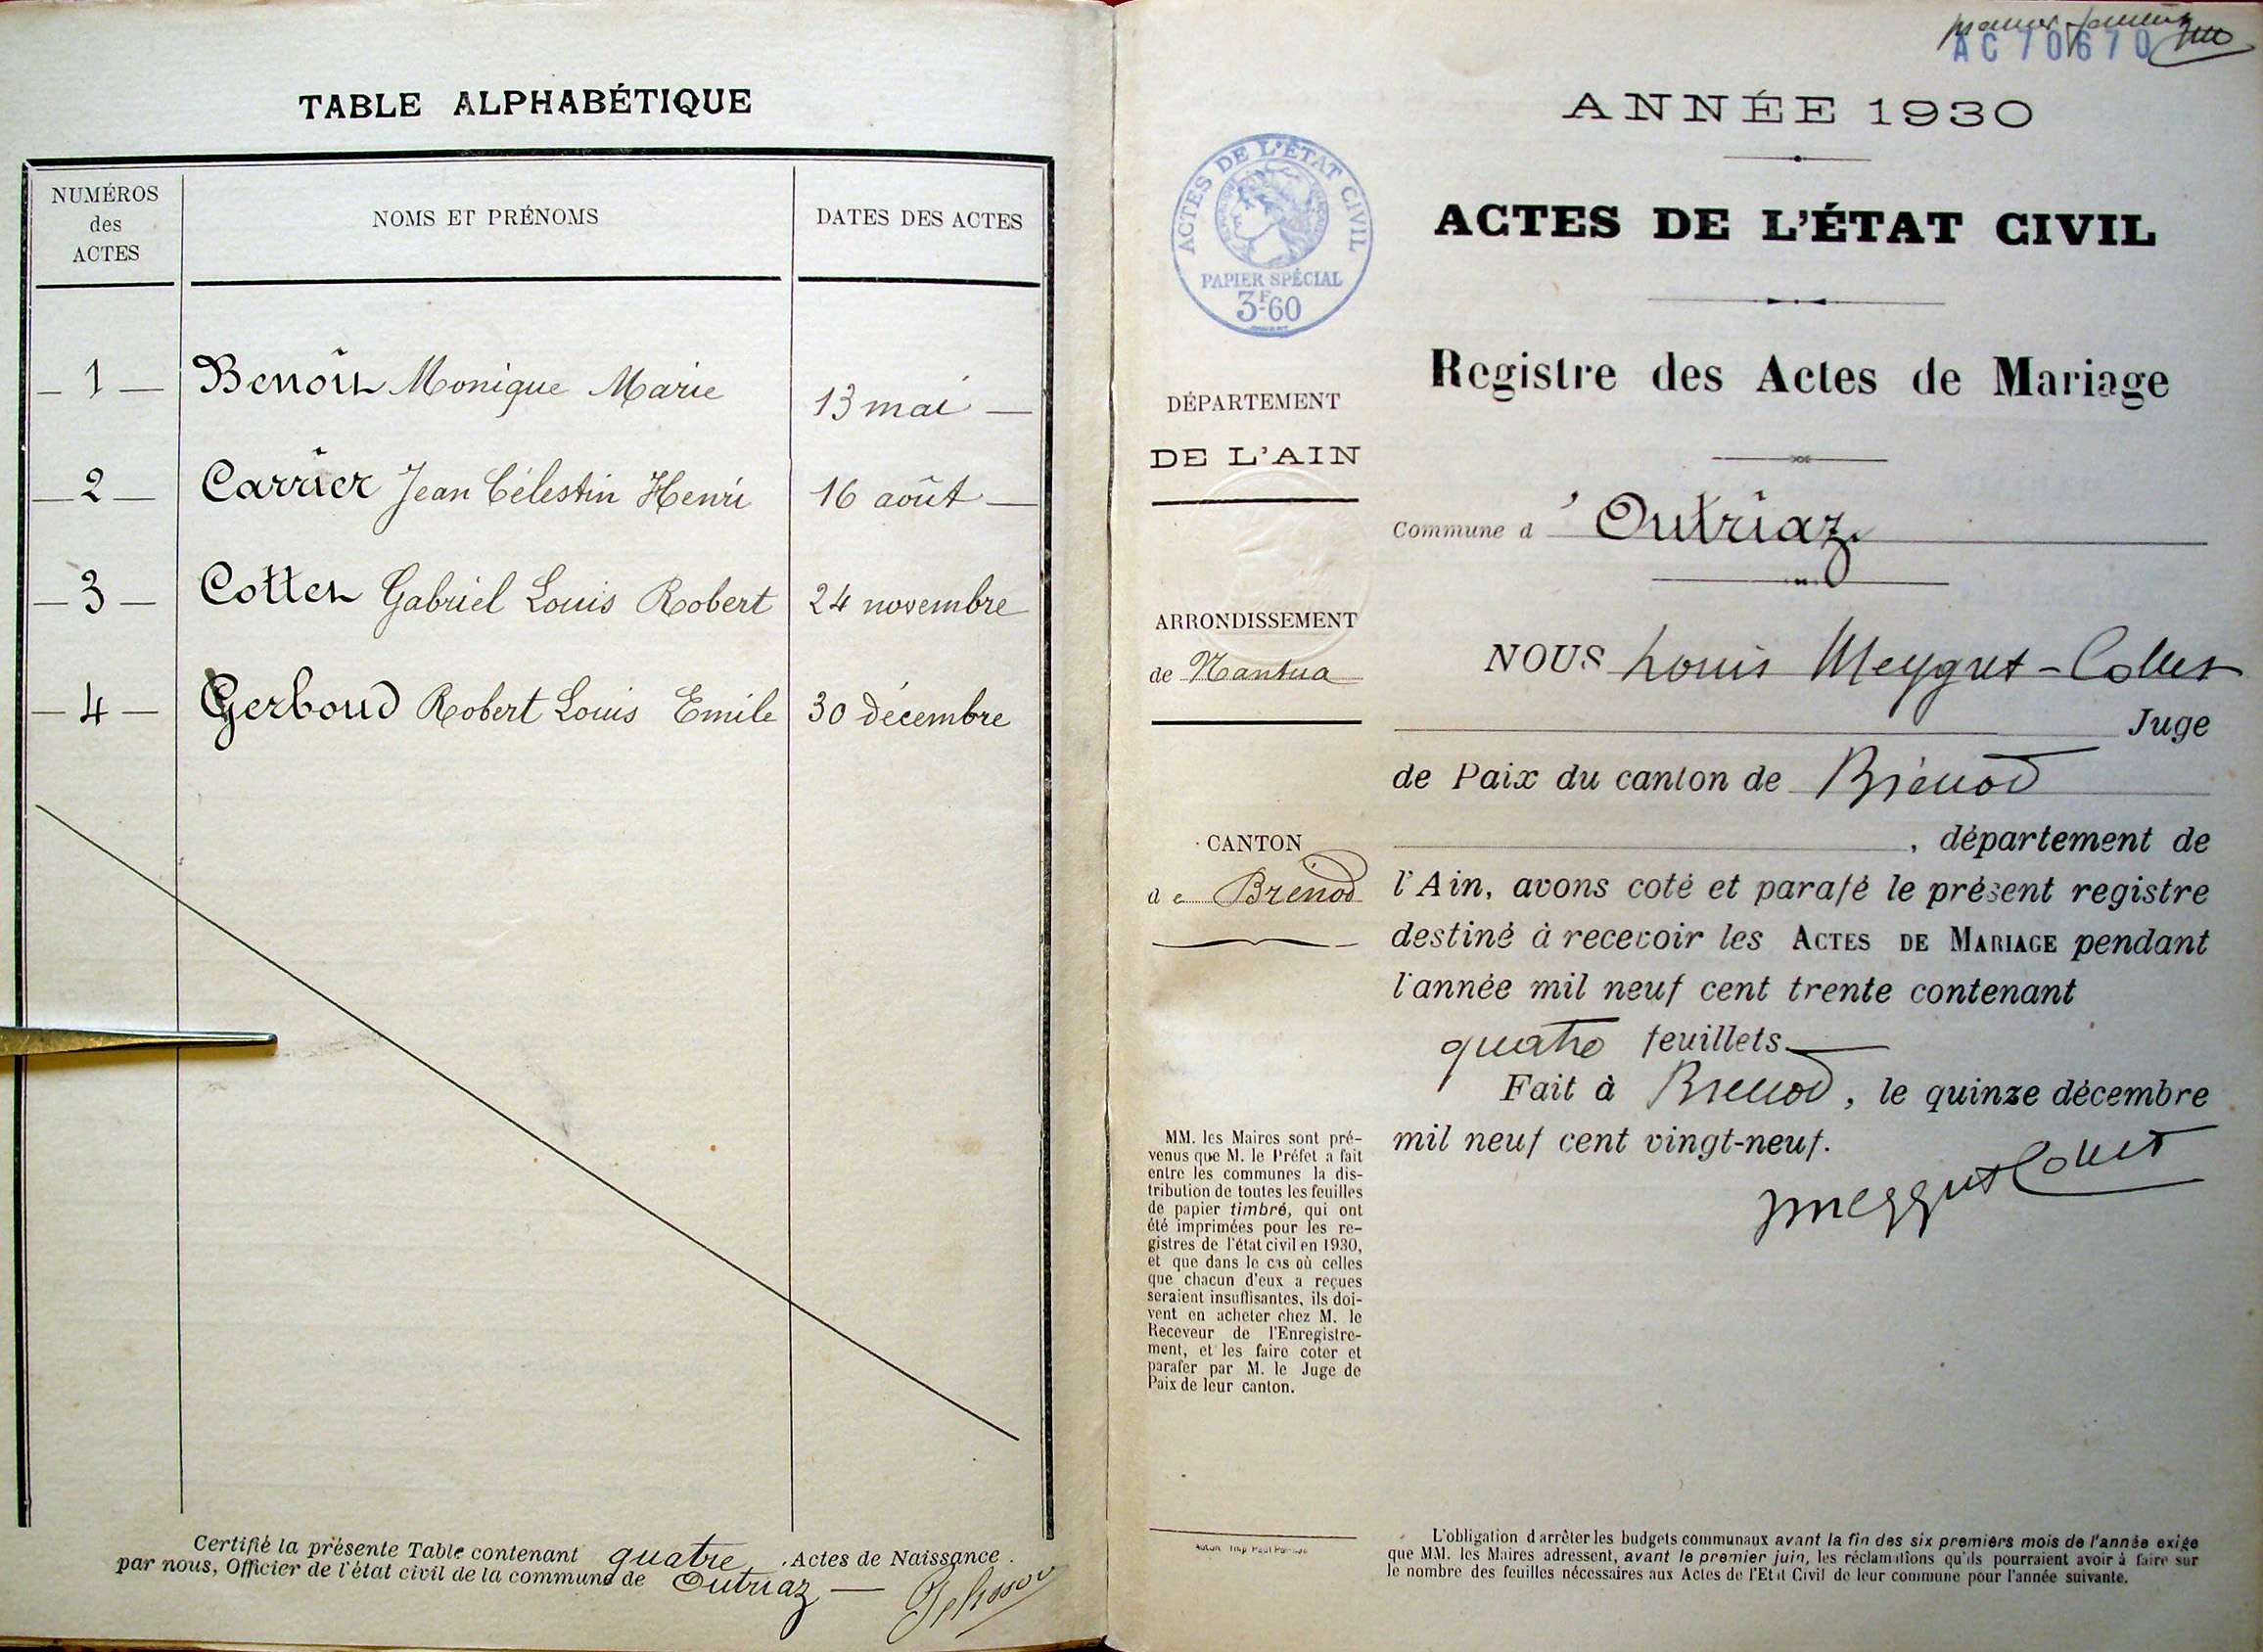 TABLE ALPHABÉTIQUE
NUMÉROS
des
ACTES
NOMS ET PRÉNOMS
DATES DES ACTES
1 Benoît Monique Marie 13 mai
2 Carrier Jean Célestin Henri 16 août
3 Cottet Gabriel Louis Robert 24 novembre
4 Gerboud Robert Louis Emile 30 décembre
Certifié la présente Table contenant quatre Actes de Naissance.
par nous, Officier de l'état civil de la commune de Outriaz
premier
AC70670
ANNÉE 1930
ACTES DE L'ÉTAT CIVIL
PAPIER SPÉCIAL
3F60
ACTES DE L'ÉTAT CIVIL
Registre des Actes de Mariage
DÉPARTEMENT
DE L'AIN
Commune d'Outriaz
ARRONDISSEMENT
de Nantua
CANTON
de Brénod
NOUS Louis Meygret-Collet
Juge
de Paix du canton de Brénod
, département de
l'Ain, avons coté et parafé le présent registre
destiné à recevoir les ACTES DE MARIAGE pendant
l'année mil neuf cent trente contenant
quatre feuillets.
Fait à Brénod, le quinze décembre
mil neuf cent vingt-neuf.
Meygret Collet
MM. les Maires sont pré-
venus que M. le Préfet a fait
entre les communes la dis-
tribution de toutes les feuilles
de papier timbré, qui ont
été imprimées pour les re-
gistres de l'état civil en 1930,
et que dans le cas où celles
que chacun d'eux a reçues
seraient insuffisantes, ils doi-
vent en acheter chez M. le
Receveur de l'Enregistre-
ment, et les faire coter et
parafer par M. le Juge de
Paix de leur canton.
L'obligation d'arrêter les budgets communaux avant la fin des six premiers mois de l'année exige
que MM. les Maires adressent, avant le premier juin, les réclamations qu'ils pourraient avoir à faire sur
le nombre des feuilles nécessaires aux Actes de l'Etat Civil de leur commune pour l'année suivante.